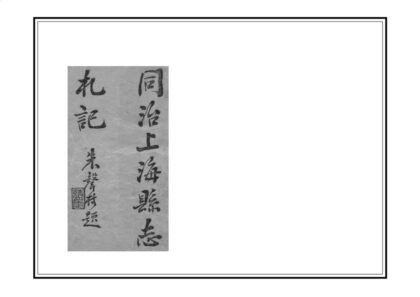 同治上海縣志
札記
朱聲樹題